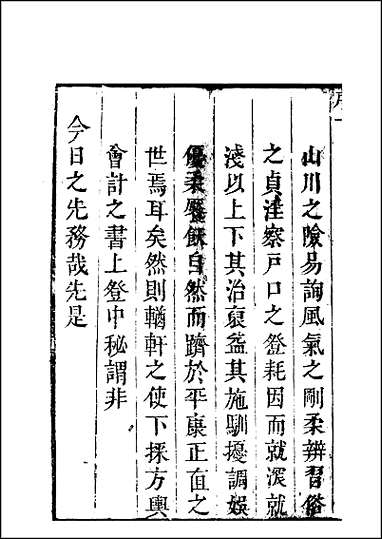 山川之險易詢風氣之剛柔辨習俗
之貞淫察戸口之登耗因而就深就
淺以上下其治裒益其施馴擾調娛
優柔厭飫自然而躋於平康正直之
世焉耳矣然則輶軒之使下採方輿
會計之書上登中秘謂非
今日之先務哉先是